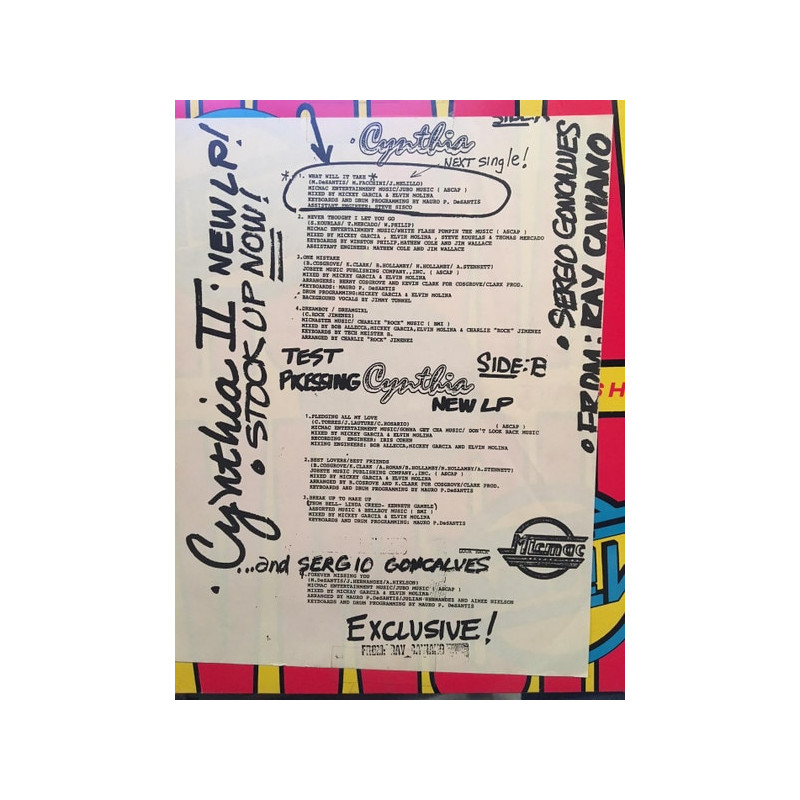 SIDE:A
Cynthia
NEXT single!
1. WHAT WILL IT TAKE
(M.DeSANTIS/ M.FACCHINI/J.MELILLO)
MICMAC ENTERTAINMENT MUSIC/JUBO MUSIC ( ASCAP )
MIXED BY MICKEY GARCIA & ELVIN MOLINA
KEYBOARDS AND DRUM PROGRAMMING BY MAURO P. DeSANTIS
ASSISTANT ENGINEER: STEVE SISCO
2. NEVER THOUGHT I LET YOU GO
(S.KOURLAS/ T.MERCADO/ W.PHILIP)
MICMAC ENTERTAINMENT MUSIC/WHITE FLASH PUMPIN THE MUSIC ( ASCAP )
MIXED BY MICKEY GARCIA , ELVIN MOLINA , STEVE KOURLAS & THOMAS MERCADO
KEYBOARDS BY WINSTON PHILIP,MATHEW COLE AND JIM WALLACE
ASSISTANT ENGINEER: MATHEW COLE AND JIM WALLACE
3.ONE MISTAKE
(B.COSGROVE/ K.CLARK/ B.HOLLAMBY/ N.HOLLAMBY/ A.STENNETT)
JOBETE MUSIC PUBLISHING COMPANY.,INC. ( ASCAP )
MIXED BY MICKEY GARCIA & ELVIN MOLINA
ARRANGERS: BERNY COSGROVE AND KEVIN CLARK FOR COSGROVE/CLARK PROD.
KEYBOARDS: MAURO P. DeSANTIS
DRUM PROGRAMMING:MICKEY GARCIA & ELVIN MOLINA
BACKGROUND VOCALS BY JIMMY TUNNEL
4.DREAMBOY / DREAMGIRL
(C.ROCK JIMENEZ)
MICMASTER MUSIC/ CHARLIE "ROCK" MUSIC ( BMI )
MIXED BY BOB ALLECCA,MICKEY GARCIA,ELVIN MOLINA & CHARLIE "ROCK" JIMENEZ
KEYBOARDS BY TECH MEISTER B.
ARRANGED BY CHARLIE "ROCK" JIMENEZ
TEST
PRESSING
Cynthia
SIDE:B
NEW LP
1.PLEDGING ALL MY LOVE
(C.TORRES/J.LAUTURE/C.ROSARIO) ( ASCAP )
MICMAC ENTERTAINMENT MUSIC/GONNA GET CHA MUSIC/ DON'T LOOK BACK MUSIC
MIXED BY MICKEY GARCIA & ELVIN MOLINA
RECORDING ENGINEER: IRIS COHEN
MIXING ENGINEERS: BOB ALLECCA,MICKEY GARCIA AND ELVIN MOLINA
2.BEST LOVERS/BEST FRIENDS
(B.COSGROVE/K.CLARK /A.ROMAN/B.HOLLAMBY/N.HOLLAMBY/A.STENNETT)
JOBETE MUSIC PUBLISHING COMPANY.,INC. ( ASCAP )
MIXED BY MICKEY GARCIA & ELVIN MOLINA
ARRANGED BY B.COSGROVE AND K.CLARK FOR COSGROVE/CLARK PROD.
KEYBOARDS AND DRUM PROGRAMMING BY MAURO P.DeSANTIS
3.BREAK UP TO MAKE UP
(THOM BELL- LINDA CREED- KENNETH GAMBLE)
ASSORTED MUSIC & BELLBOY MUSIC ( BMI )
MIXED BY MICKEY GARCIA & ELVIN MOLINA
KEYBOARDS AND DRUM PROGRAMMING: MAURO P.DeSANTIS
Micmac
...and SERGIO GONCALVES
FOREVER MISSING YOU
(M.DeSANTIS/J.HERNANDEZ/A.NIELSON)
MICMAC ENTERTAINMENT MUSIC/JUBO MUSIC ( ASCAP )
MIXED BY MICKEY GARCIA & ELVIN MOLINA
ARRANGED BY MAURO P.DeSANTIS/JULIAN HERNANDEZ AND AIMEE NIELSON
KEYBOARDS AND DRUM PROGRAMMING BY MAURO P. DeSANTIS
EXCLUSIVE!
FROM: RAY CAVIANO
• Cynthia II • NEW LP!
• STOCK UP NOW!
• SERGIO GONCALVES
• FROM: RAY CAVIANO
SH